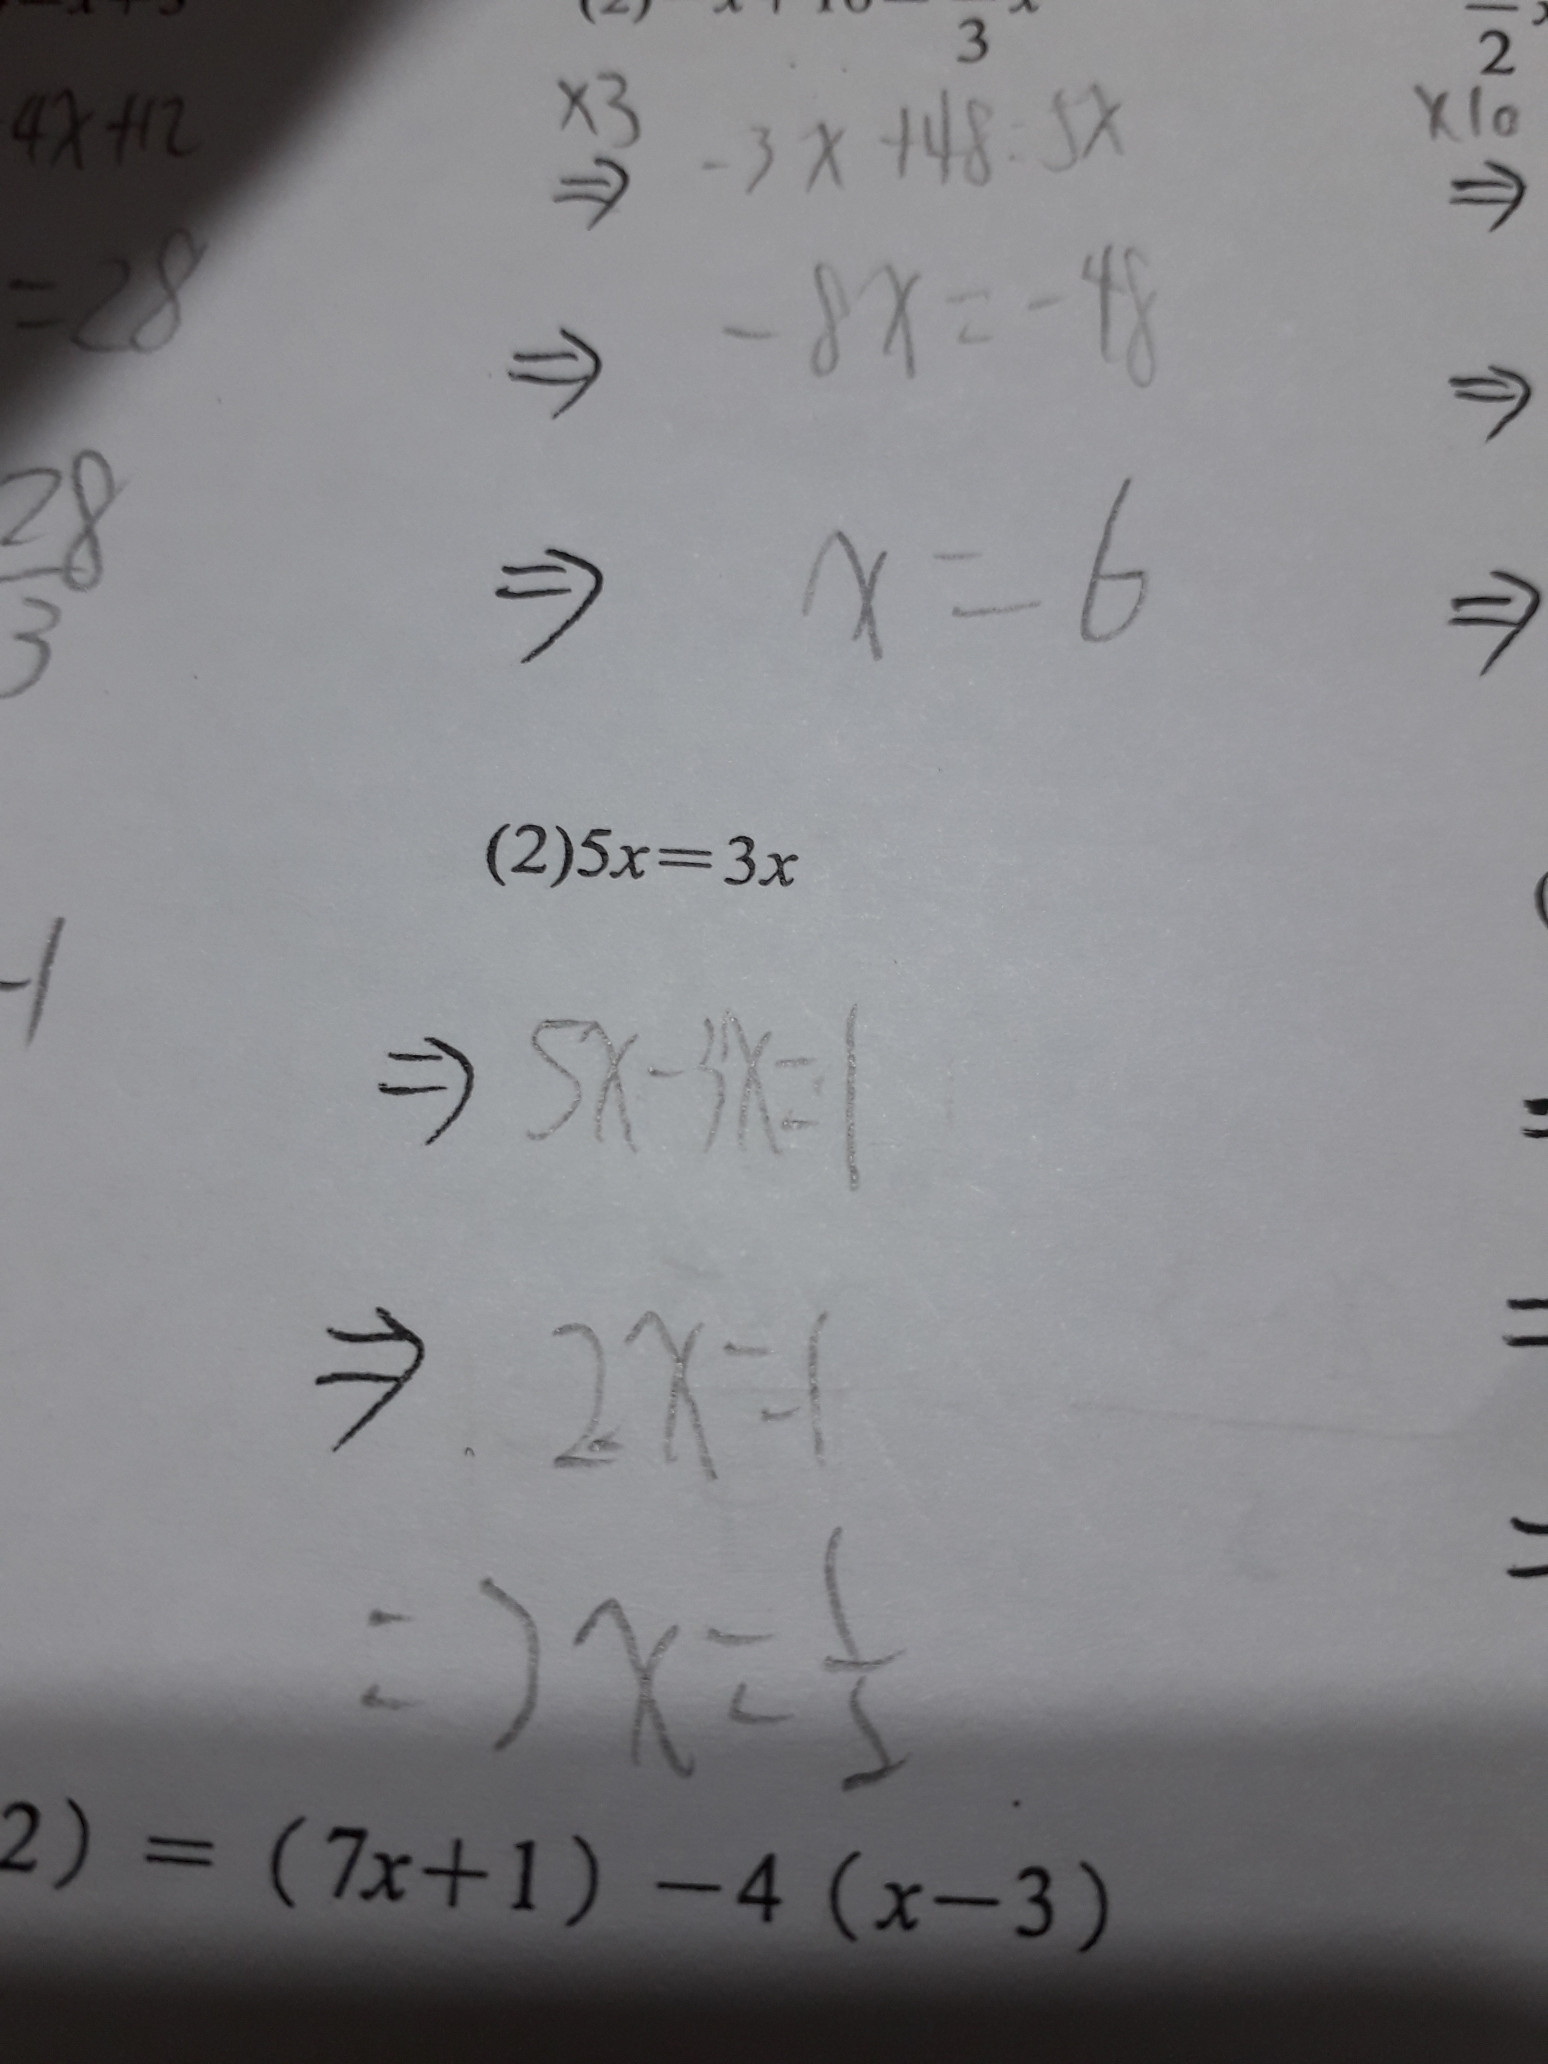 4x+12
=28
28
3
-1
3
×3
⇒ -3x+48=5x
⇒ -8x=-48
⇒ x=6
(2)5x=3x
⇒ 5x-3x=1
⇒ 2x=1
⇒ x=1
2
×10
⇒
⇒
⇒
2) = (7x+1) -4 (x-3)